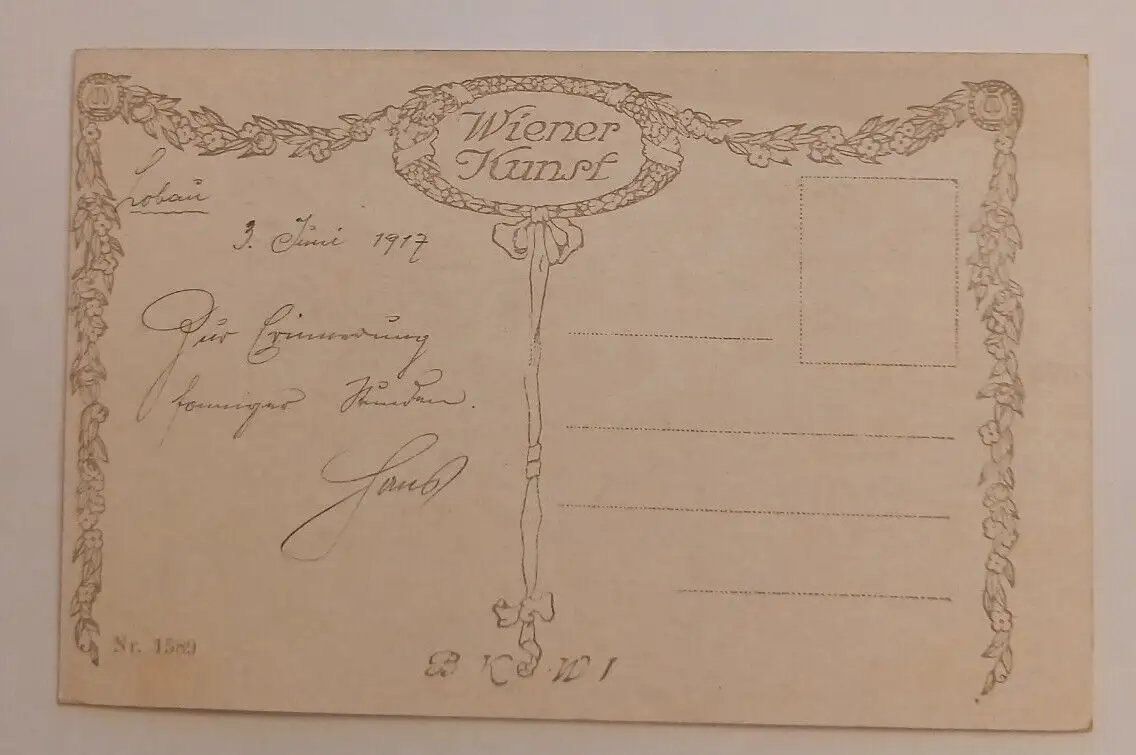 Wiener
Kunst
Lobau
3. Juni 1917
Zur Erinnerung
sonniger Stunden.
Hans
Nr. 1589
B K W I